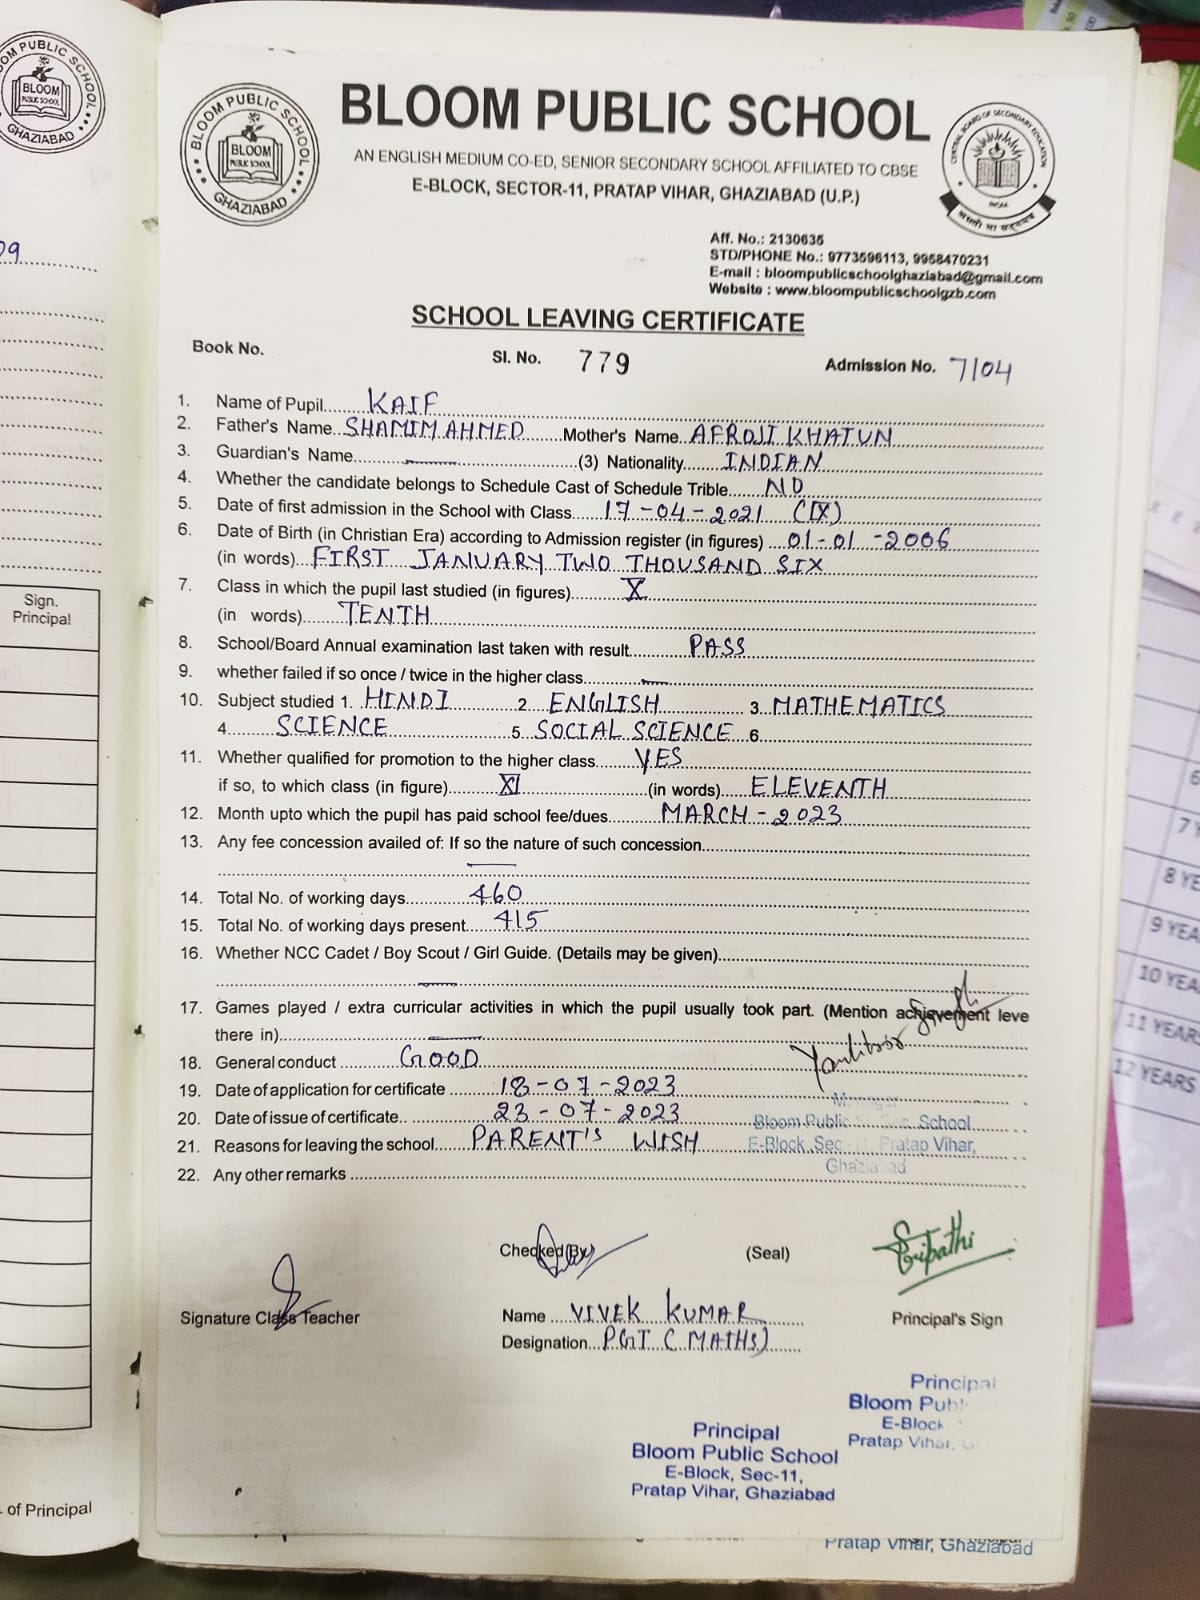 OM PUBLIC SCHOOL
BLOOM
PUBLIC SCHOOL
GHAZIABAD
09
Sign.
Principal
. of Principal
BLOOM PUBLIC SCHOOL
BLOOM
PUBLIC SCHOOL
GHAZIABAD
BLOOM PUBLIC SCHOOL
CENTRAL BOARD OF SECONDARY EDUCATION
INDIA
AN ENGLISH MEDIUM CO-ED, SENIOR SECONDARY SCHOOL AFFILIATED TO CBSE
E-BLOCK, SECTOR-11, PRATAP VIHAR, GHAZIABAD (U.P.)
Aff. No.: 2130635
STD/PHONE No.: 9773596113, 9958470231
E-mail : bloompublicschoolghaziabad@gmail.com
Website : www.bloompublicschoolgzb.com
SCHOOL LEAVING CERTIFICATE
Book No. Sl. No. 779 Admission No. 7104
1. Name of Pupil KAIF
2. Father's Name SHAMIM AHMED Mother's Name AFROJI KHATUN
3. Guardian's Name — (3) Nationality INDIAN
4. Whether the candidate belongs to Schedule Cast of Schedule Trible NO
5. Date of first admission in the School with Class 17-04-2021 (IX)
6. Date of Birth (in Christian Era) according to Admission register (in figures) 01-01-2006
(in words) FIRST JANUARY TWO THOUSAND SIX
7. Class in which the pupil last studied (in figures) X
(in words) TENTH
8. School/Board Annual examination last taken with result PASS
9. whether failed if so once / twice in the higher class —
10. Subject studied 1. HINDI 2 ENGLISH 3 MATHEMATICS
4 SCIENCE 5 SOCIAL SCIENCE 6
11. Whether qualified for promotion to the higher class YES
if so, to which class (in figure) XI (in words) ELEVENTH
12. Month upto which the pupil has paid school fee/dues MARCH-2023
13. Any fee concession availed of: If so the nature of such concession
—
14. Total No. of working days 460
15. Total No. of working days present 415
16. Whether NCC Cadet / Boy Scout / Girl Guide. (Details may be given)
—
17. Games played / extra curricular activities in which the pupil usually took part. (Mention achievement leve
there in) —
18. General conduct GOOD
19. Date of application for certificate 18-07-2023
20. Date of issue of certificate 23-07-2023
21. Reasons for leaving the school PARENT'S WISH
22. Any other remarks
Manager
Bloom Public Sr. Sec. School
E-Block, Sec-11, Pratap Vihar,
Ghaziabad
Checked By (Seal) Tripathi
Signature Class Teacher Name VIVEK KUMAR Principal's Sign
Designation PGT (MATHS)
Principal
Bloom Publ
E-Block
Pratap Vihar, G
Principal
Bloom Public School
E-Block, Sec-11,
Pratap Vihar, Ghaziabad
Pratap Vihar, Ghaziabad
6
7 Y
8 YE
9 YEA
10 YEA
11 YEARS
12 YEARS